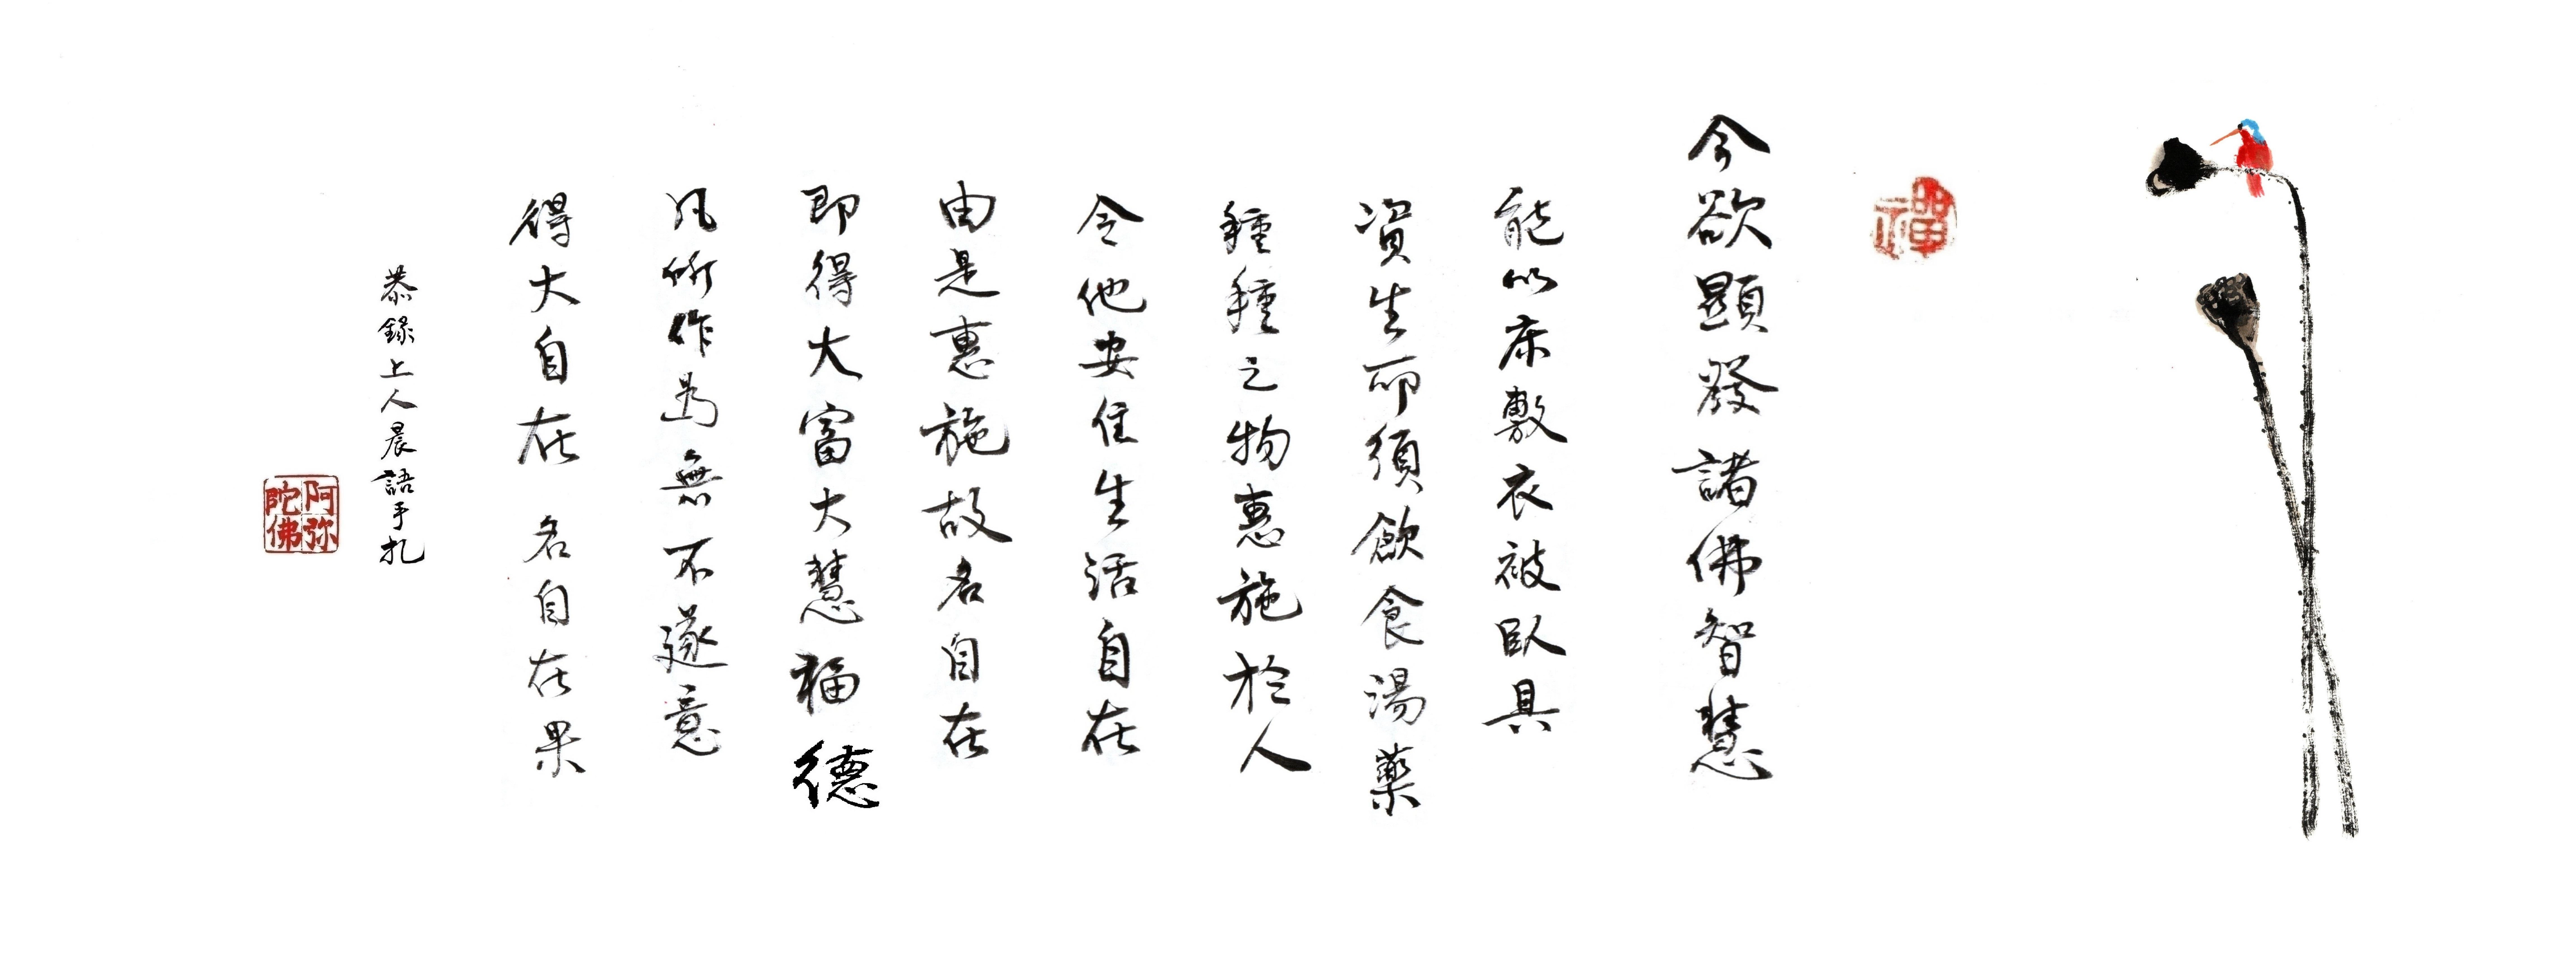 禪
今欲顯發諸佛智慧
能以床敷衣被臥具
資生所須飲食湯藥
種種之物惠施於人
令他安住生活自在
由是惠施故名自在
即得大富大慧福德
凡所作為無不遂意
得大自在 名自在果
恭錄上人晨語手扎
阿弥陀佛